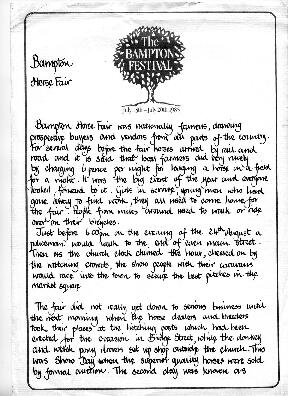 The
BAMPTON
FESTIVAL
July - July 20th 1985
Bampton
Horse Fair
Bampton Horse Fair was nationally famous, drawing
prospective buyers and vendors from all parts of the country.
For several days before the fair horses arrived by rail and
road and it is said that local farmers did very nicely
by charging 6 pence per night for lodging a horse in a field
for a night. It was the big event of the year and everyone
looked forward to it. Girls in service, young men who had
gone away to find work, they all used to come home for
the fair. People from miles around used to walk or ride
over on their bicycles.
Just before 6.00pm on the evening of the 26th August a
policeman would walk to the end of each main street.
Then as the church clock chimed the hour, cheered on by
the watching crowds, the show people with their caravans
would race into the town to secure the best pitches in the
market square.
The fair did not really get down to serious business until
the next morning when the horse dealers and breeders
took their places at the hitching posts which had been
erected for the occasion in Bridge Street, while the donkey
and welsh pony drovers set up shop outside the church. This
was Show Day when the superior quality horses were sold
by formal auction. The second day was known as